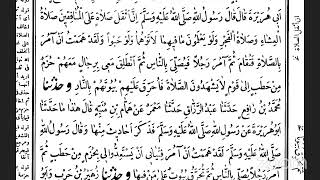 أَبِى هُرَيْرَةَ قَالَ قَالَ رَسُولُ اللهِ صَلَّى اللهُ عَلَيْهِ وَسَلَّمَ إِنَّ أَثْقَلَ صَلَاةٍ عَلَى الْمُنَافِقِينَ صَلَاةُ
الْعِشَاءِ وَصَلَاةُ الْفَجْرِ وَلَوْ يَعْلَمُونَ مَا فِيهِمَا لَأَتَوْهُمَا وَلَوْ حَبْوًا وَلَقَدْ هَمَمْتُ أَنْ آمُرَ
بِالصَّلَاةِ فَتُقَامَ ثُمَّ آمُرَ رَجُلًا فَيُصَلِّىَ بِالنَّاسِ ثُمَّ أَنْطَلِقَ مَعِى بِرِجَالٍ مَعَهُمْ حُزَمٌ
مِنْ حَطَبٍ إِلَى قَوْمٍ لَا يَشْهَدُونَ الصَّلَاةَ فَأُحَرِّقَ عَلَيْهِمْ بُيُوتَهُمْ بِالنَّارِ و حَدَّثَنَا
مُحَمَّدُ بْنُ رَافِعٍ حَدَّثَنَا عَبْدُ الرَّزَّاقِ حَدَّثَنَا مَعْمَرٌ عَنْ هَمَّامِ بْنِ مُنَبِّهٍ قَالَ هٰذَا مَا حَدَّثَنَا
أَبُو هُرَيْرَةَ عَنْ رَسُولِ اللهِ صَلَّى اللهُ عَلَيْهِ وَسَلَّمَ فَذَكَرَ أَحَادِيثَ مِنْهَا وَقَالَ رَسُولُ اللهِ
صَلَّى اللهُ عَلَيْهِ وَسَلَّمَ لَقَدْ هَمَمْتُ أَنْ آمُرَ فِتْيَانِى أَنْ يَسْتَعِدُّوا لِى بِحُزَمٍ مِنْ حَطَبٍ ثُمَّ
آمُرَ رَجُلًا يُصَلِّى بِالنَّاسِ ثُمَّ تُحَرَّقُ بُيُوتٌ عَلَى مَنْ فِيهَا و حَدَّثَنَا زُهَيْرُ بْنُ حَرْبٍ وَأَبُو